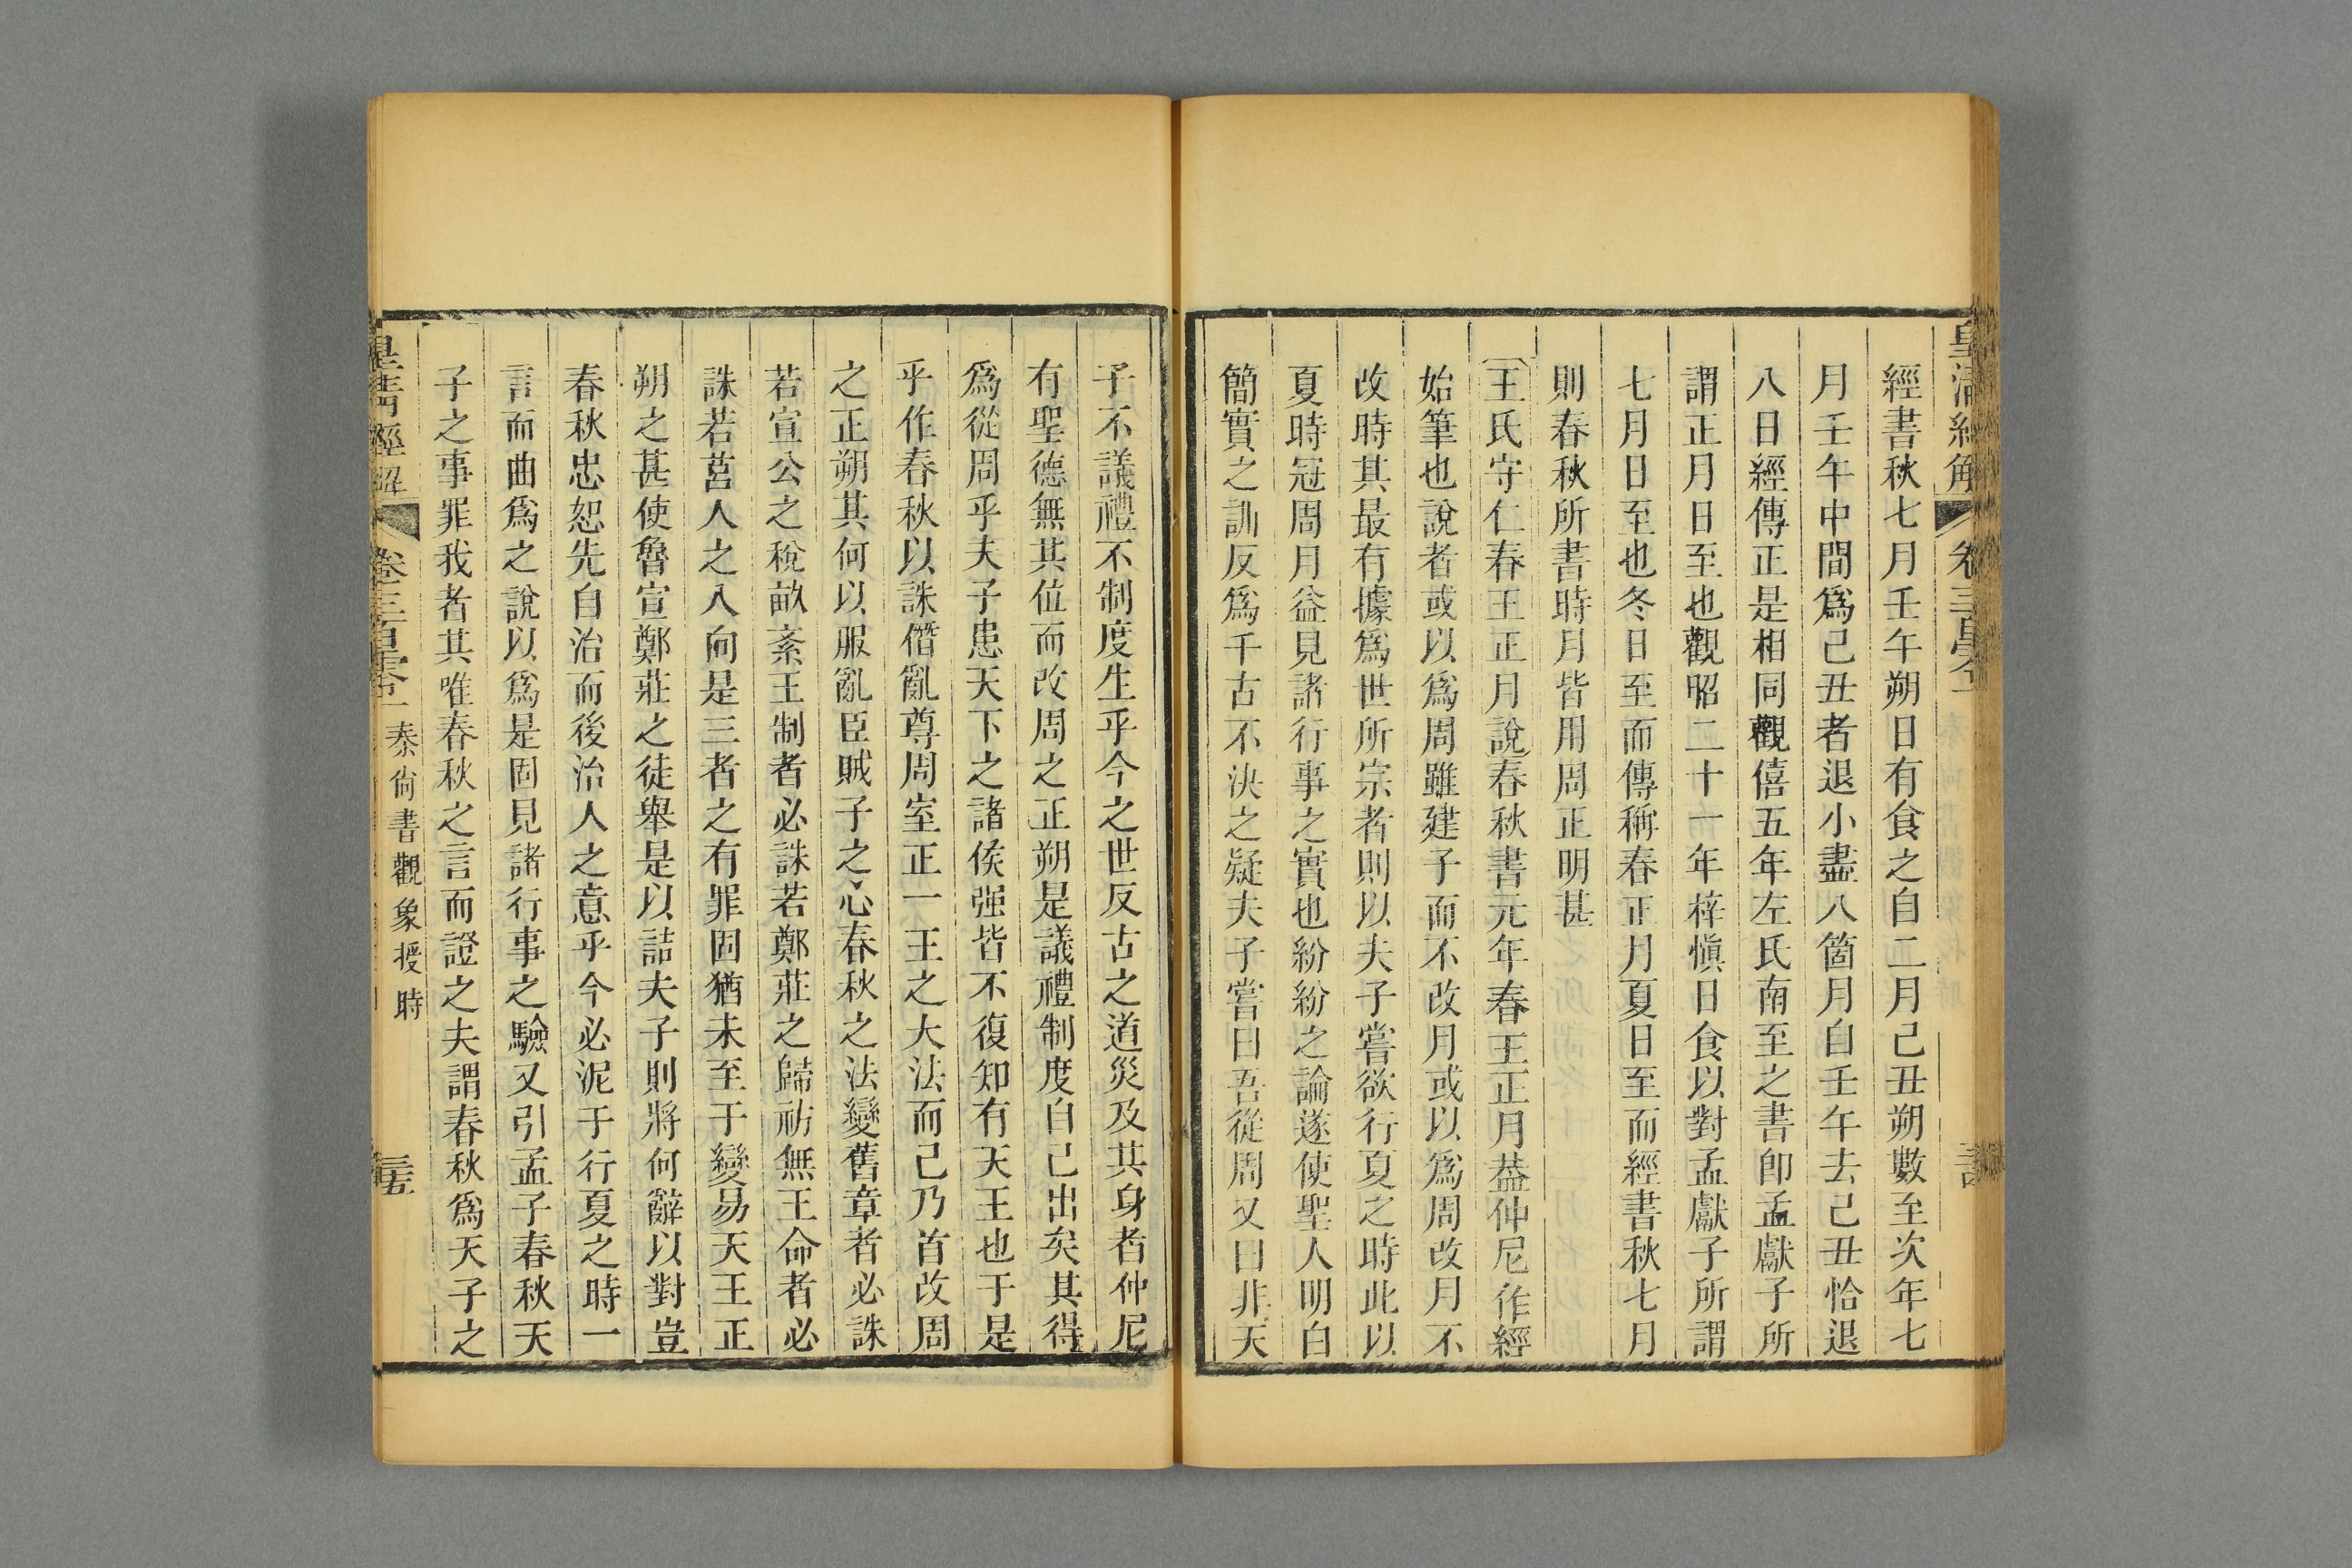 皇清經解 卷三百四十一
經書秋七月壬午朔日有食之自二月己丑朔數至次年七
月壬午中間爲己丑者退小盡八箇月自壬午去己丑恰退
八日經傳正是相同觀僖五年左氏南至之書卽孟獻子所
謂正月日至也觀昭二十一年梓愼日食以對孟獻子所謂
七月日至也冬日至而傳稱春正月夏日至而經書秋七月
則春秋所書時月皆用周正明甚
〔王氏守仁春王正月說〕春秋書元年春王正月葢仲尼作經
始筆也說者或以爲周雖建子而不改月或以爲周改月不
改時其最有據爲世所宗者則以夫子嘗欲行夏之時此以
夏時冠周月益見諸行事之實也紛紛之論遂使聖人明白
簡實之訓反爲千古不決之疑夫子嘗曰吾從周又曰非天
子不議禮不制度生乎今之世反古之道災及其身者仲尼
有聖德無其位而改周之正朔是議禮制度自己出矣其得
爲從周乎夫子患天下之諸侯强皆不復知有天王也于是
乎作春秋以誅僭亂尊周室正一王之大法而己乃首改周
之正朔其何以服亂臣賊子之心春秋之法變舊章者必誅
若宣公之稅畝紊王制者必誅若鄭莊之歸祊無王命者必
誅若莒人之入向是三者之有罪固猶未至于變易天王正
朔之甚使魯宣鄭莊之徒舉是以詰夫子則將何辭以對豈
春秋忠恕先自治而後治人之意乎今必泥于行夏之時一
言而曲爲之說以爲是固見諸行事之驗又引孟子春秋天
子之事罪我者其唯春秋之言而證之夫謂春秋爲天子之
皇淸經解 秦尙書觀象授時 三五